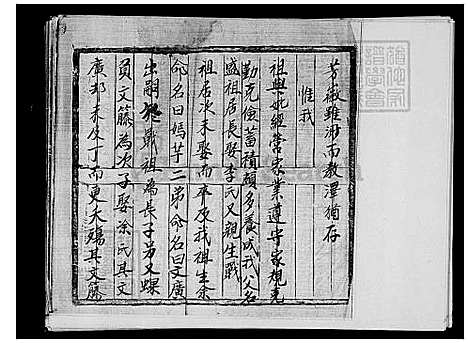 芳徽雖渺而教澤猶存
惟我
祖與妣經營家業遵守家規克
勤克儉蓄積頗多養成我父名
盛祖居長娶李氏又親生戰
祖居次未娶而卒庚我祖生余
命名曰媽芋二弟命名曰文廣
出嗣戰祖為長子另又螺
負文籐為次子娶余氏其文
廣邦未成丁而更夭殤其文籐